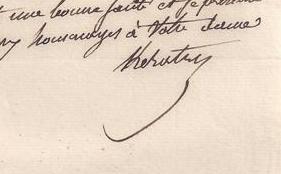 une bonne santé et je présente
hommages à votre dame
Kératry